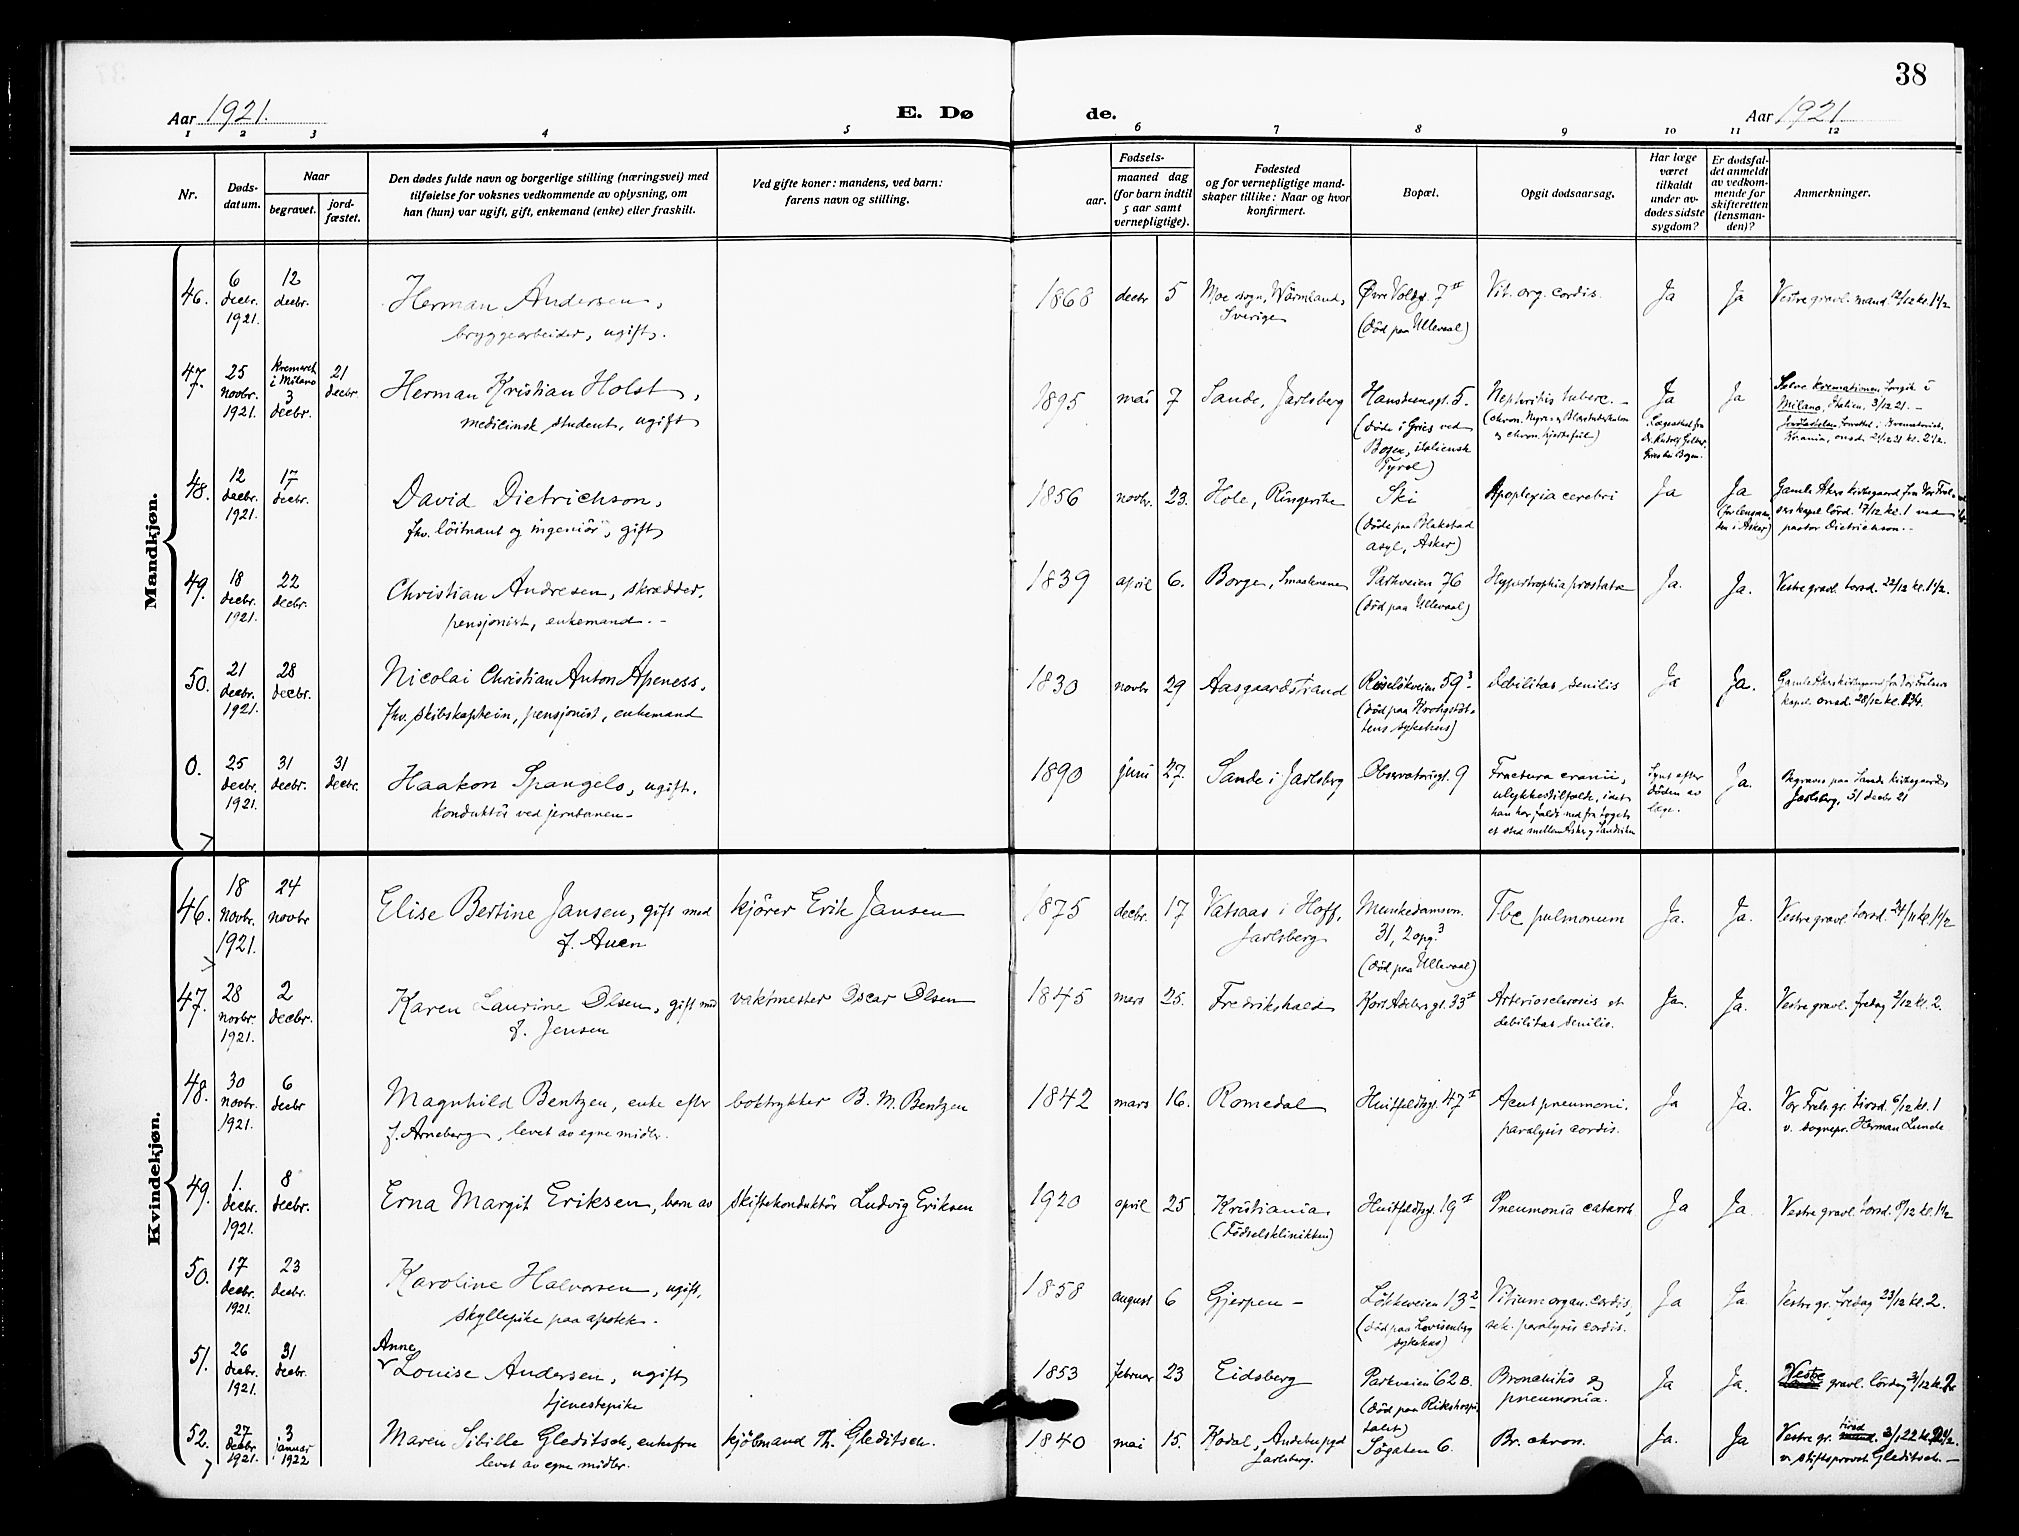 38
Aar 1921.
E. Dø
de.
Aar 1921.
1 2 3 4 5 6 7 8 9 10 11 12
Nr.
Døds-
datum.
Naar
begravet.
jord-
fæstet.
Den dødes fulde navn og borgerlige stilling (næringsvei) med
tilføielse for voksnes vedkommende av oplysning, om
han (hun) var ugift, gift, enkemand (enke) eller fraskilt.
Ved gifte koner: mandens, ved barn:
farens navn og stilling.
Fødsels-
aar.
maaned dag
(for barn indtil
5 aar samt
vernepligtige).
Fødested
og for vernepligtige mand-
skaper tillike: Naar og hvor
konfirmert.
Bopæl.
Opgit dødsaarsag.
Har læge
været
tilkaldt
under av-
dødes sidste
sygdom?
Er dødsfal-
det anmeldt
av vedkom-
mende for
skifteretten
(lensman-
den)?
Anmerkninger.
Mandkjøn.
46.
6
decbr.
1921.
12
decbr.
Herman Andersen,
bryggearbeider, ugift.
1868 decbr 5
Moe sogn, Wärmland,
Sverige
Øvre Voldg. 7 II
(død paa Ullevaal)
Vit. org. cordis.
Ja
Ja
Vestre gravl. mand. 12/12 kl. 1 1/2
47.
25
novbr.
1921.
Kremeret
i Milano
3
decbr.
21
decbr.
Herman Kristian Holst,
medicinsk student, ugift
1895 mai 7
Sande, Jarlsberg
Hansteensgt. 5.
(døde i Gries ved
Bozen, italiensk
Tyrol)
Nephritis tuberc. -
(chron. Nyre- og Blæretuberkulose
og chron. hjertefeil)
Ja
Ja
Selve kremationen foregik i
Milano, Italien, 3/12 21. -
48.
12
decbr.
1921.
17
decbr.
David Dietrichson,
fhv. löitnant og ingeniör, gift
1856 novbr. 23.
Hole, Ringerike
Ski
(døde paa Blakstad
asyl, Asker)
Apoplexia cerebri
Ja
Ja
(for lensman-
den i Asker)
Gamle Akers kirkegaard fra Vor Frel-
sers kapel lörd. 17/12 kl. 1 ved
pastor Dietrichson. -
49.
18
decbr.
1921.
22
decbr.
Christian Andresen, skrædder,
pensjonist, enkemand. -
1839 april 6.
Borge, Smaalenene
Parkveien 76
(død paa Ullevaal)
Hypertrophia prostatae
Ja.
Ja.
Vestre gravl. torsd. 22/12 kl. 1 1/2.
50.
21
decbr.
1921.
28
decbr.
Nicolai Christian Anton Apeness,
fhv. skibskaptein, pensjonist, enkemand
1830 novbr 29
Aasgaardstrand
Ruselökveien 59 3
(død paa
sykehus)
debilitas senilis
Ja
Ja.
Gamle Akers kirkegaard fra Vor Frelsers
kapel. onsd. 28/12 kl.
0.
25
decbr.
1921.
31
decbr.
31
decbr.
Haakon Spangelo, ugift,
konduktör ved jernbanen -
1890 juni 27.
Sande i Jarlsberg
Observatoriegt. 9
Fractura cranii,
ulykkestilfælde, idet
han har faldt ned fra toget
et sted mellem Asker og Sandviken
Synt efter
døden av
læge.
Ja.
Begraves paa Sande kirkegaard
Jarlsberg, 31 decbr 21
Kvindekjøn.
46.
18
novbr.
1921.
24
novbr
Elise Bertine Jansen, gift med
f. Auen
kjörer Erik Jansen
1875 decbr. 17
Vatsaas i Hoff,
Jarlsberg
Munkedamsvn.
31, 2 opg. 3
(død paa Ullevaal)
Tbc pulmonum
Ja.
Ja.
Vestre gravl. torsd. 24/11 kl. 1 1/2
47.
28
novbr.
1921.
2
decbr.
Karen Laurine Olsen, gift med
f. Jensen
vaktmester Oscar Olsen
1845 mars 25.
Fredrikshald
Kort Adelers gt. 33 I
Arteriosclerosis et
debilitas senilis.
Ja.
Ja.
Vestre gravl. fredag 2/12 kl. 2.
48.
30
novbr.
1921.
6
decbr
Magnhild Bentzen, enke efter
f. Arneberg, levet av egne midler.
boktrykker B. M. Bentzen
1842 mars 16.
Romedal
Huitfeldtsgt. 47 I
Acut pneumoni.
paralysis cordis.
Ja
Ja.
Vor Frels. gr. tirsd. 6/12 kl. 1
v. sognepr. Herman Lunde
49.
1.
decbr.
1921.
8
decbr.
Erna Margit Eriksen, barn av
skiftekonduktör Ludvig Eriksen
1920 april 25
Kristiania
(Födselsklinikken)
Huitfeldtsgt. 19 I
Pneumonia catarrh
Ja
Ja.
Vestre gravl. torsd. 8/12 kl. 1 1/2
50.
17
decbr.
1921.
23
decbr.
Karoline Halvorsen, ugift,
skyllepike paa apotek.
1858 august 6
Gjerpen -
Lökkeveien 13 2
(død paa Lovisenberg
sykehus)
Vitium organ. cordis,
sek. paralysis cordis.
Ja
Ja.
Vestre gr. fredag 23/12 kl. 2.
51.
26
decbr.
1921.
31
decbr.
Anne
Louise Andersen, ugift
tjenestepike
1853 februar 23
Eidsberg
Parkveien 62 B.
(død paa Rikshospi-
talet)
Bronchitis og
pneumonia.
Ja
Ja.
Vestre gravl. lördag 31/12 kl. 2
52.
27
decbr
1921.
3
januar
1922
Maren Sibille Gleditsch, enke fra
levet av egne midler.
kjöbmand Th. Gleditsch.
1840 mai 15.
Kodal, Andebu pgd
Jarlsberg.
Søgaten 6.
Br. chron.
Ja.
Ja
Vestre gr. tirsd. 3/1 22 kl.
v. stiftsprovst Gleditsch. -